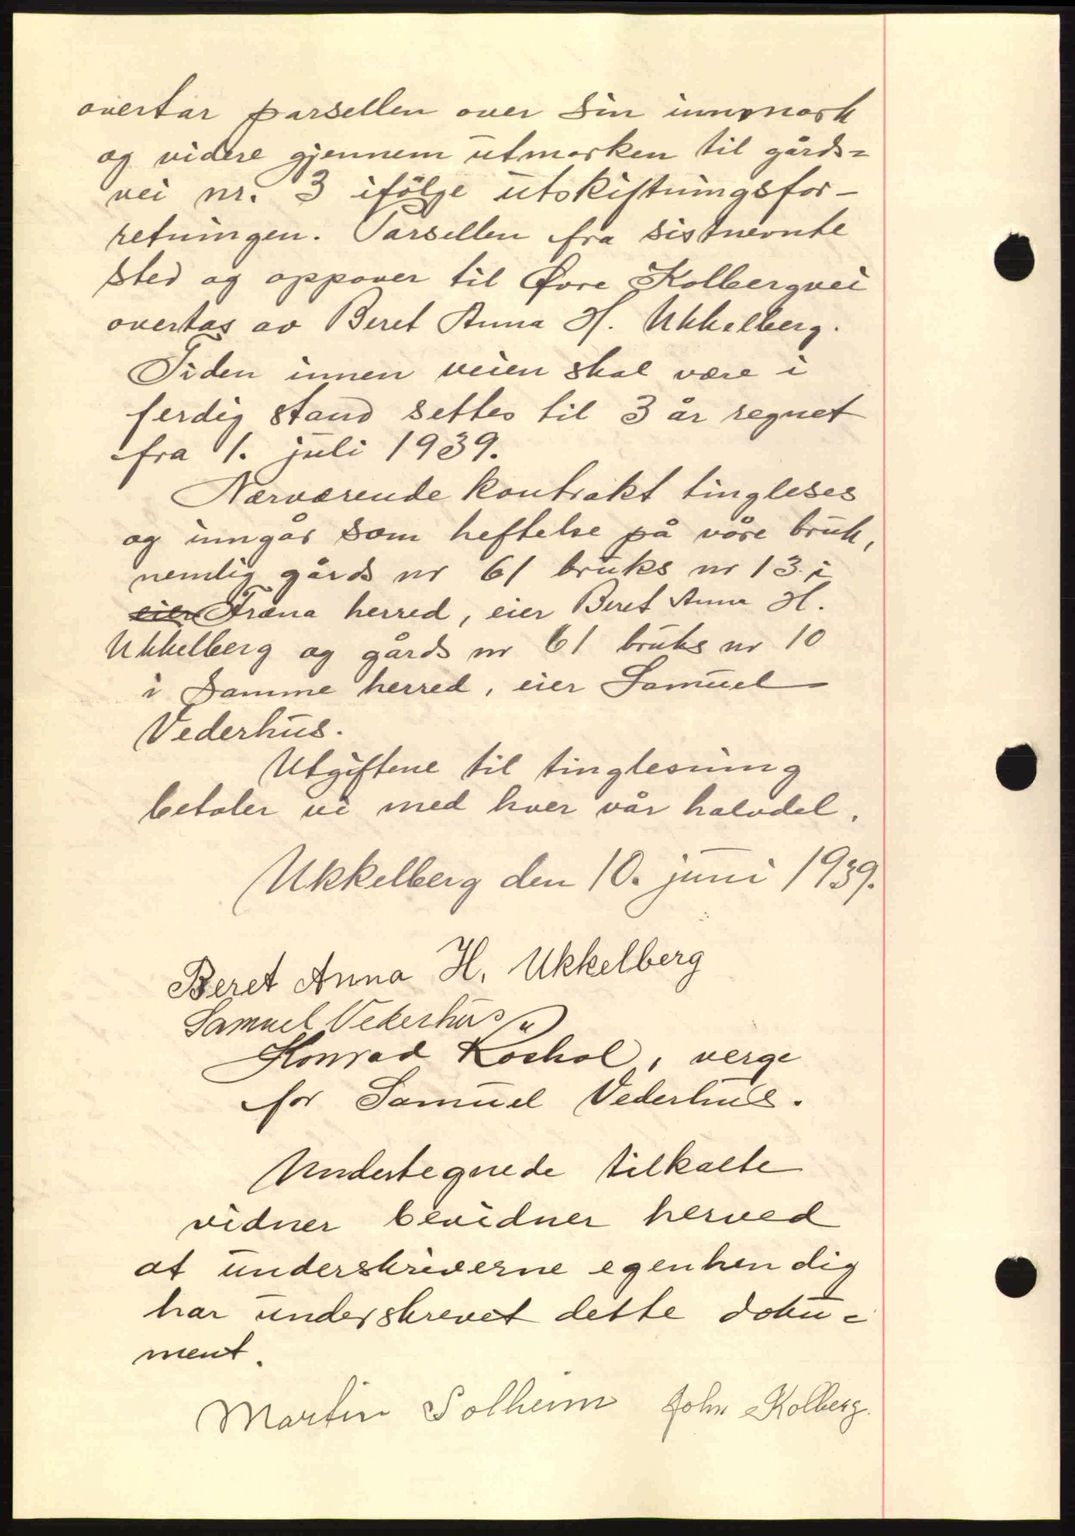 overtar parsellen over sin innmark
og videre gjennem utmarken til gårds=
vei nr. 3 ifölge utskiftningsfor-
retningen. Parsellen fra sistnevnte
sted og oppover til Øvre Kolbergvei
overtas av Beret Anna H. Ukkelberg.
Tiden innen veien skal være i
ferdig stand settes til 3 år regnet
fra 1. juli 1939.
Nærværende kontrakt tingleses
og inngår som heftelse på våre bruk,
nemlig gårds nr 61 bruks nr 13 i
eier Fræna herred, eier Beret Anna H.
Ukkelberg og gårds nr 61 bruks nr 10
i samme herred, eier Samuel
Vederhus.
Utgiftene til tinglesning
betaler vi med hver vår halvdel.
Ukkelberg den 10. juni 1939.
Beret Anna H. Ukkelberg
Samuel Vederhus
Konrad, verge
for Samuel Vederhus.
Undertegnede tilkalte
vidner bevidner herved
at underskriverne egenhendig
har underskrevet dette doku=
ment.
Martin Solheim John Kolberg.